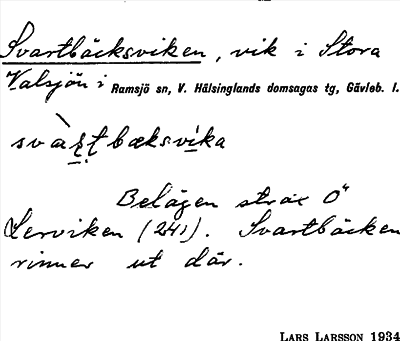 Svartbäcksviken, vik i Stora
Valsjön i Ramsjö sn, V. Hälsinglands domsagas tg, Gävleb. l.
svàṣṭbæksvika
Belägen strax Ö
Lerviken (241). Svartbäcken
rinner ut där.
LARS LARSSON 1934